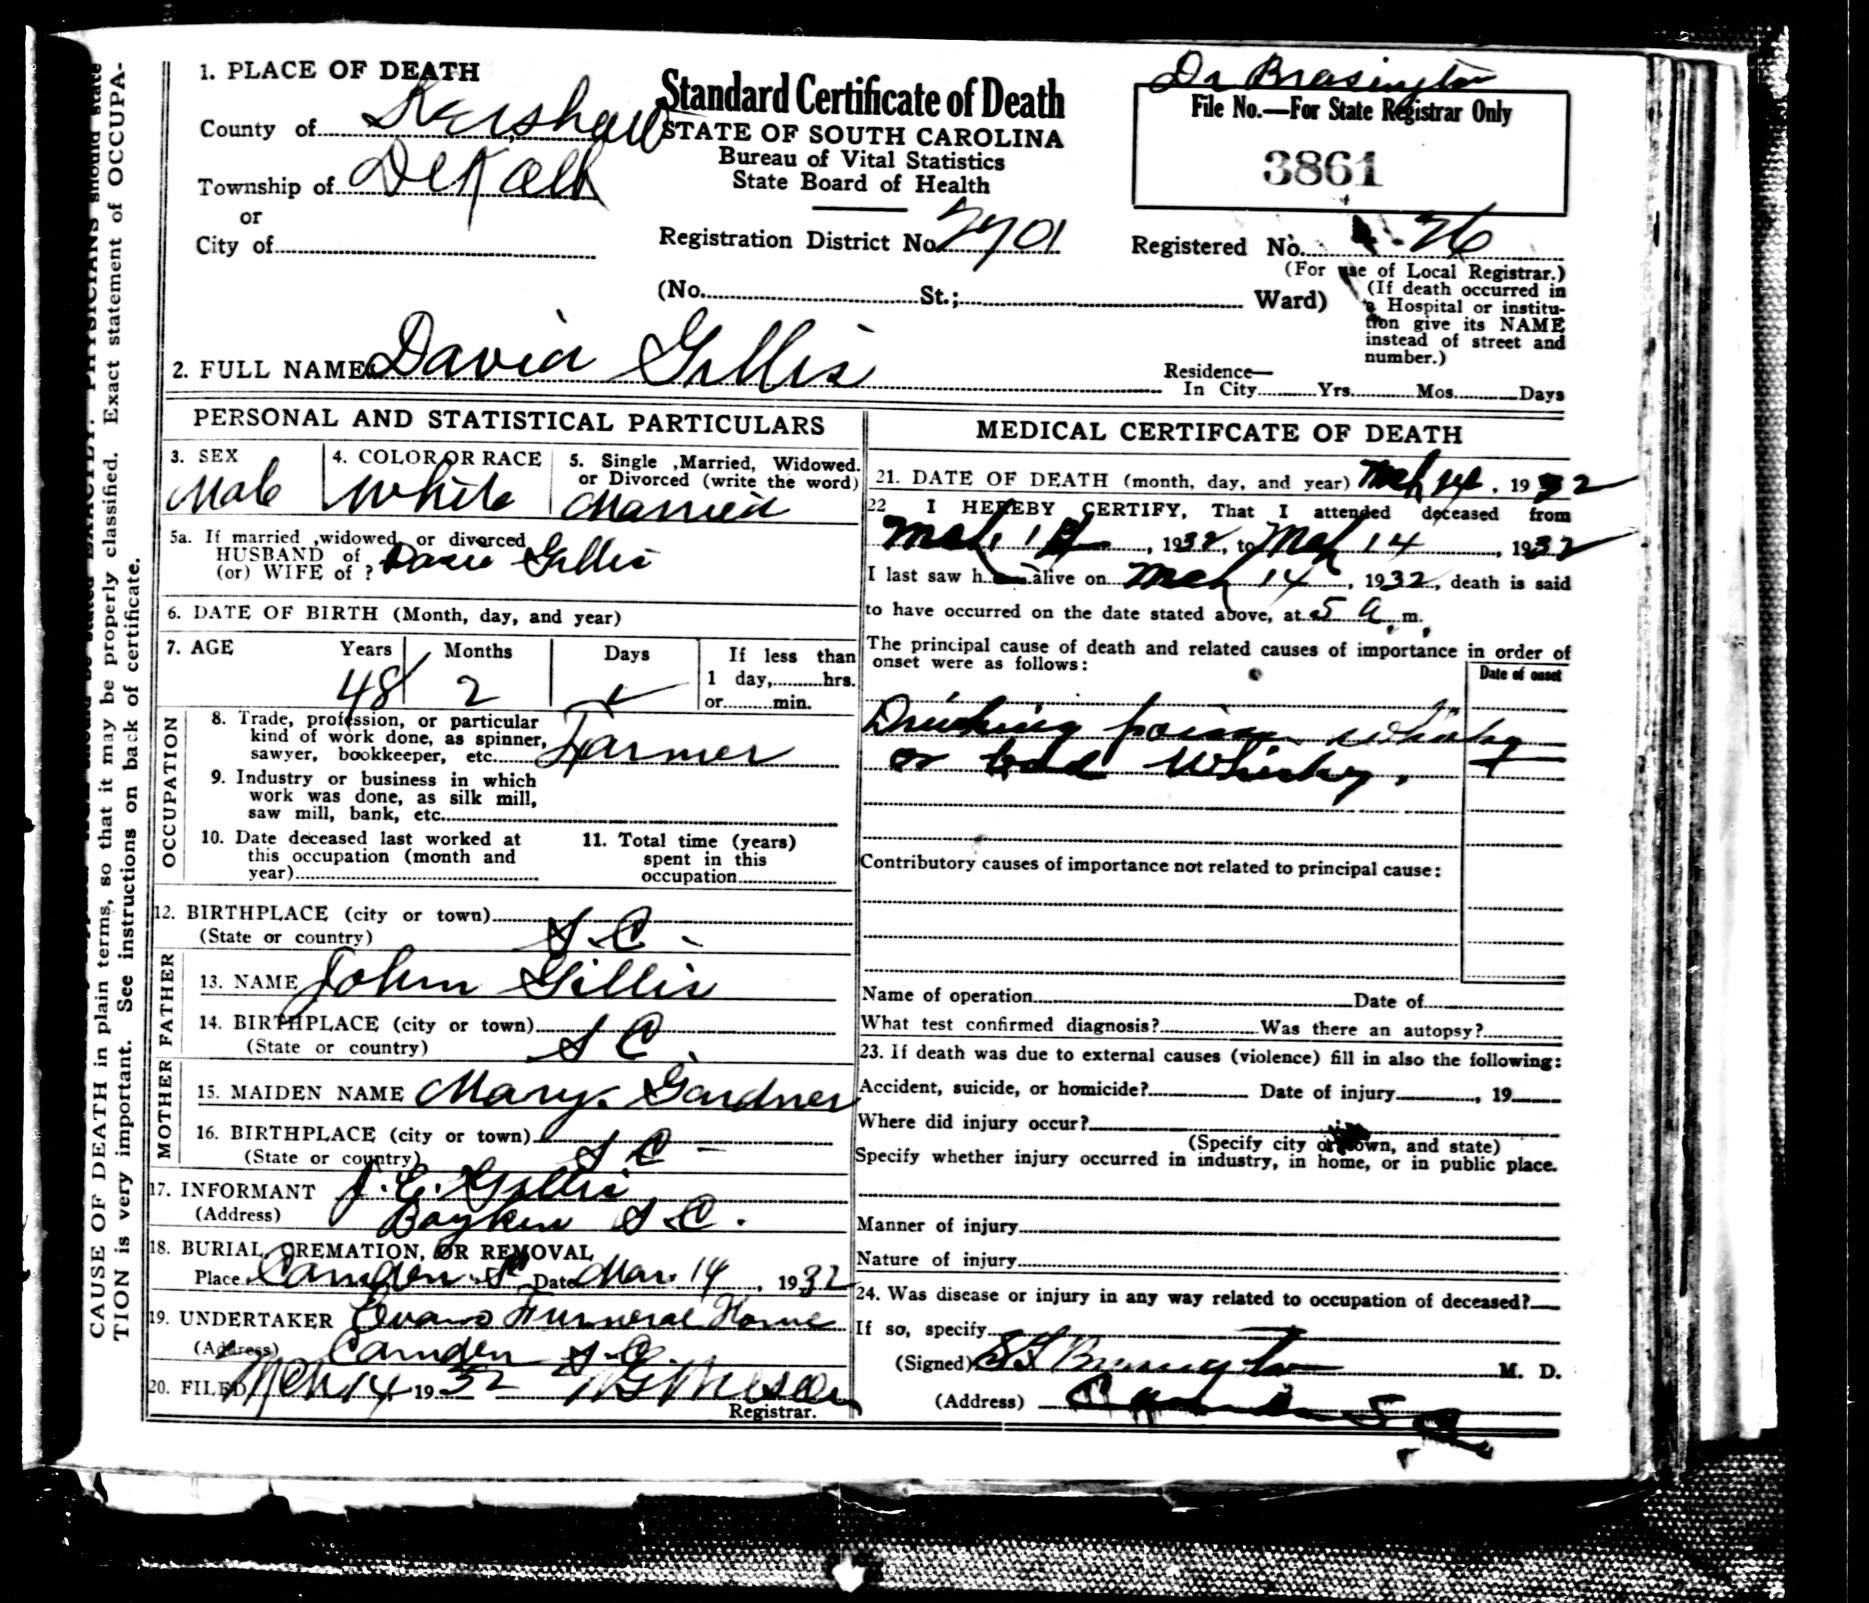 1. PLACE OF DEATH
County of Kershaw
Township of DeKalb
or
City of
Standard Certificate of Death
STATE OF SOUTH CAROLINA
Bureau of Vital Statistics
State Board of Health
Dr Brasington
File No.—For State Registrar Only
3861
Registration District No. 2701
Registered No. 26
(For use of Local Registrar.)
(No. St.; Ward)
(If death occurred in
a Hospital or institu-
tion give its NAME
instead of street and
number.)
2. FULL NAME David Gillis
Residence—
In City Yrs. Mos. Days
PERSONAL AND STATISTICAL PARTICULARS
3. SEX
Male
4. COLOR OR RACE
White
5. Single ,Married, Widowed.
or Divorced (write the word)
Married
5a. If married ,widowed, or divorced
HUSBAND of
(or) WIFE of ? Gillis
6. DATE OF BIRTH (Month, day, and year)
7. AGE Years Months Days If less than
48 2 1 day, hrs.
or min.
OCCUPATION
8. Trade, profession, or particular
kind of work done, as spinner,
sawyer, bookkeeper, etc. Farmer
9. Industry or business in which
work was done, as silk mill,
saw mill, bank, etc.
10. Date deceased last worked at
this occupation (month and
year)
11. Total time (years)
spent in this
occupation
12. BIRTHPLACE (city or town)
(State or country) S.C.
FATHER
13. NAME John Gillis
14. BIRTHPLACE (city or town)
(State or country) S C.
MOTHER
15. MAIDEN NAME Mary Gardner
16. BIRTHPLACE (city or town)
(State or country) S C
17. INFORMANT J. C. Gillis
(Address) Boykin S.C.
18. BURIAL, CREMATION, OR REMOVAL
Place Camden S C Date Mar. 14, 1932
19. UNDERTAKER Evans Funeral Home
(Address) Camden S.C.
20. FILED Mch 14 1932
Registrar.
MEDICAL CERTIFCATE OF DEATH
21. DATE OF DEATH (month, day, and year) Mch 14, 1932
22 I HEREBY CERTIFY, That I attended deceased from
Mch, 1932, to Mch 14, 1932
I last saw h alive on Mch 14, 1932, death is said
to have occurred on the date stated above, at 5 a. m.
The principal cause of death and related causes of importance in order of
onset were as follows:
Date of onset
Drinking poison whisky
or bad Whiskey.
Contributory causes of importance not related to principal cause:
Name of operation Date of
What test confirmed diagnosis? Was there an autopsy?
23. If death was due to external causes (violence) fill in also the following:
Accident, suicide, or homicide? Date of injury, 19
Where did injury occur?
(Specify city or town, and state)
Specify whether injury occurred in industry, in home, or in public place.
Manner of injury
Nature of injury
24. Was disease or injury in any way related to occupation of deceased?
If so, specify
(Signed) Brasington M. D.
(Address) Camden S C
CAUSE OF DEATH in plain terms, so that it may be properly classified. Exact statement of OCCUPA-
TION is very important. See instructions on back of certificate.